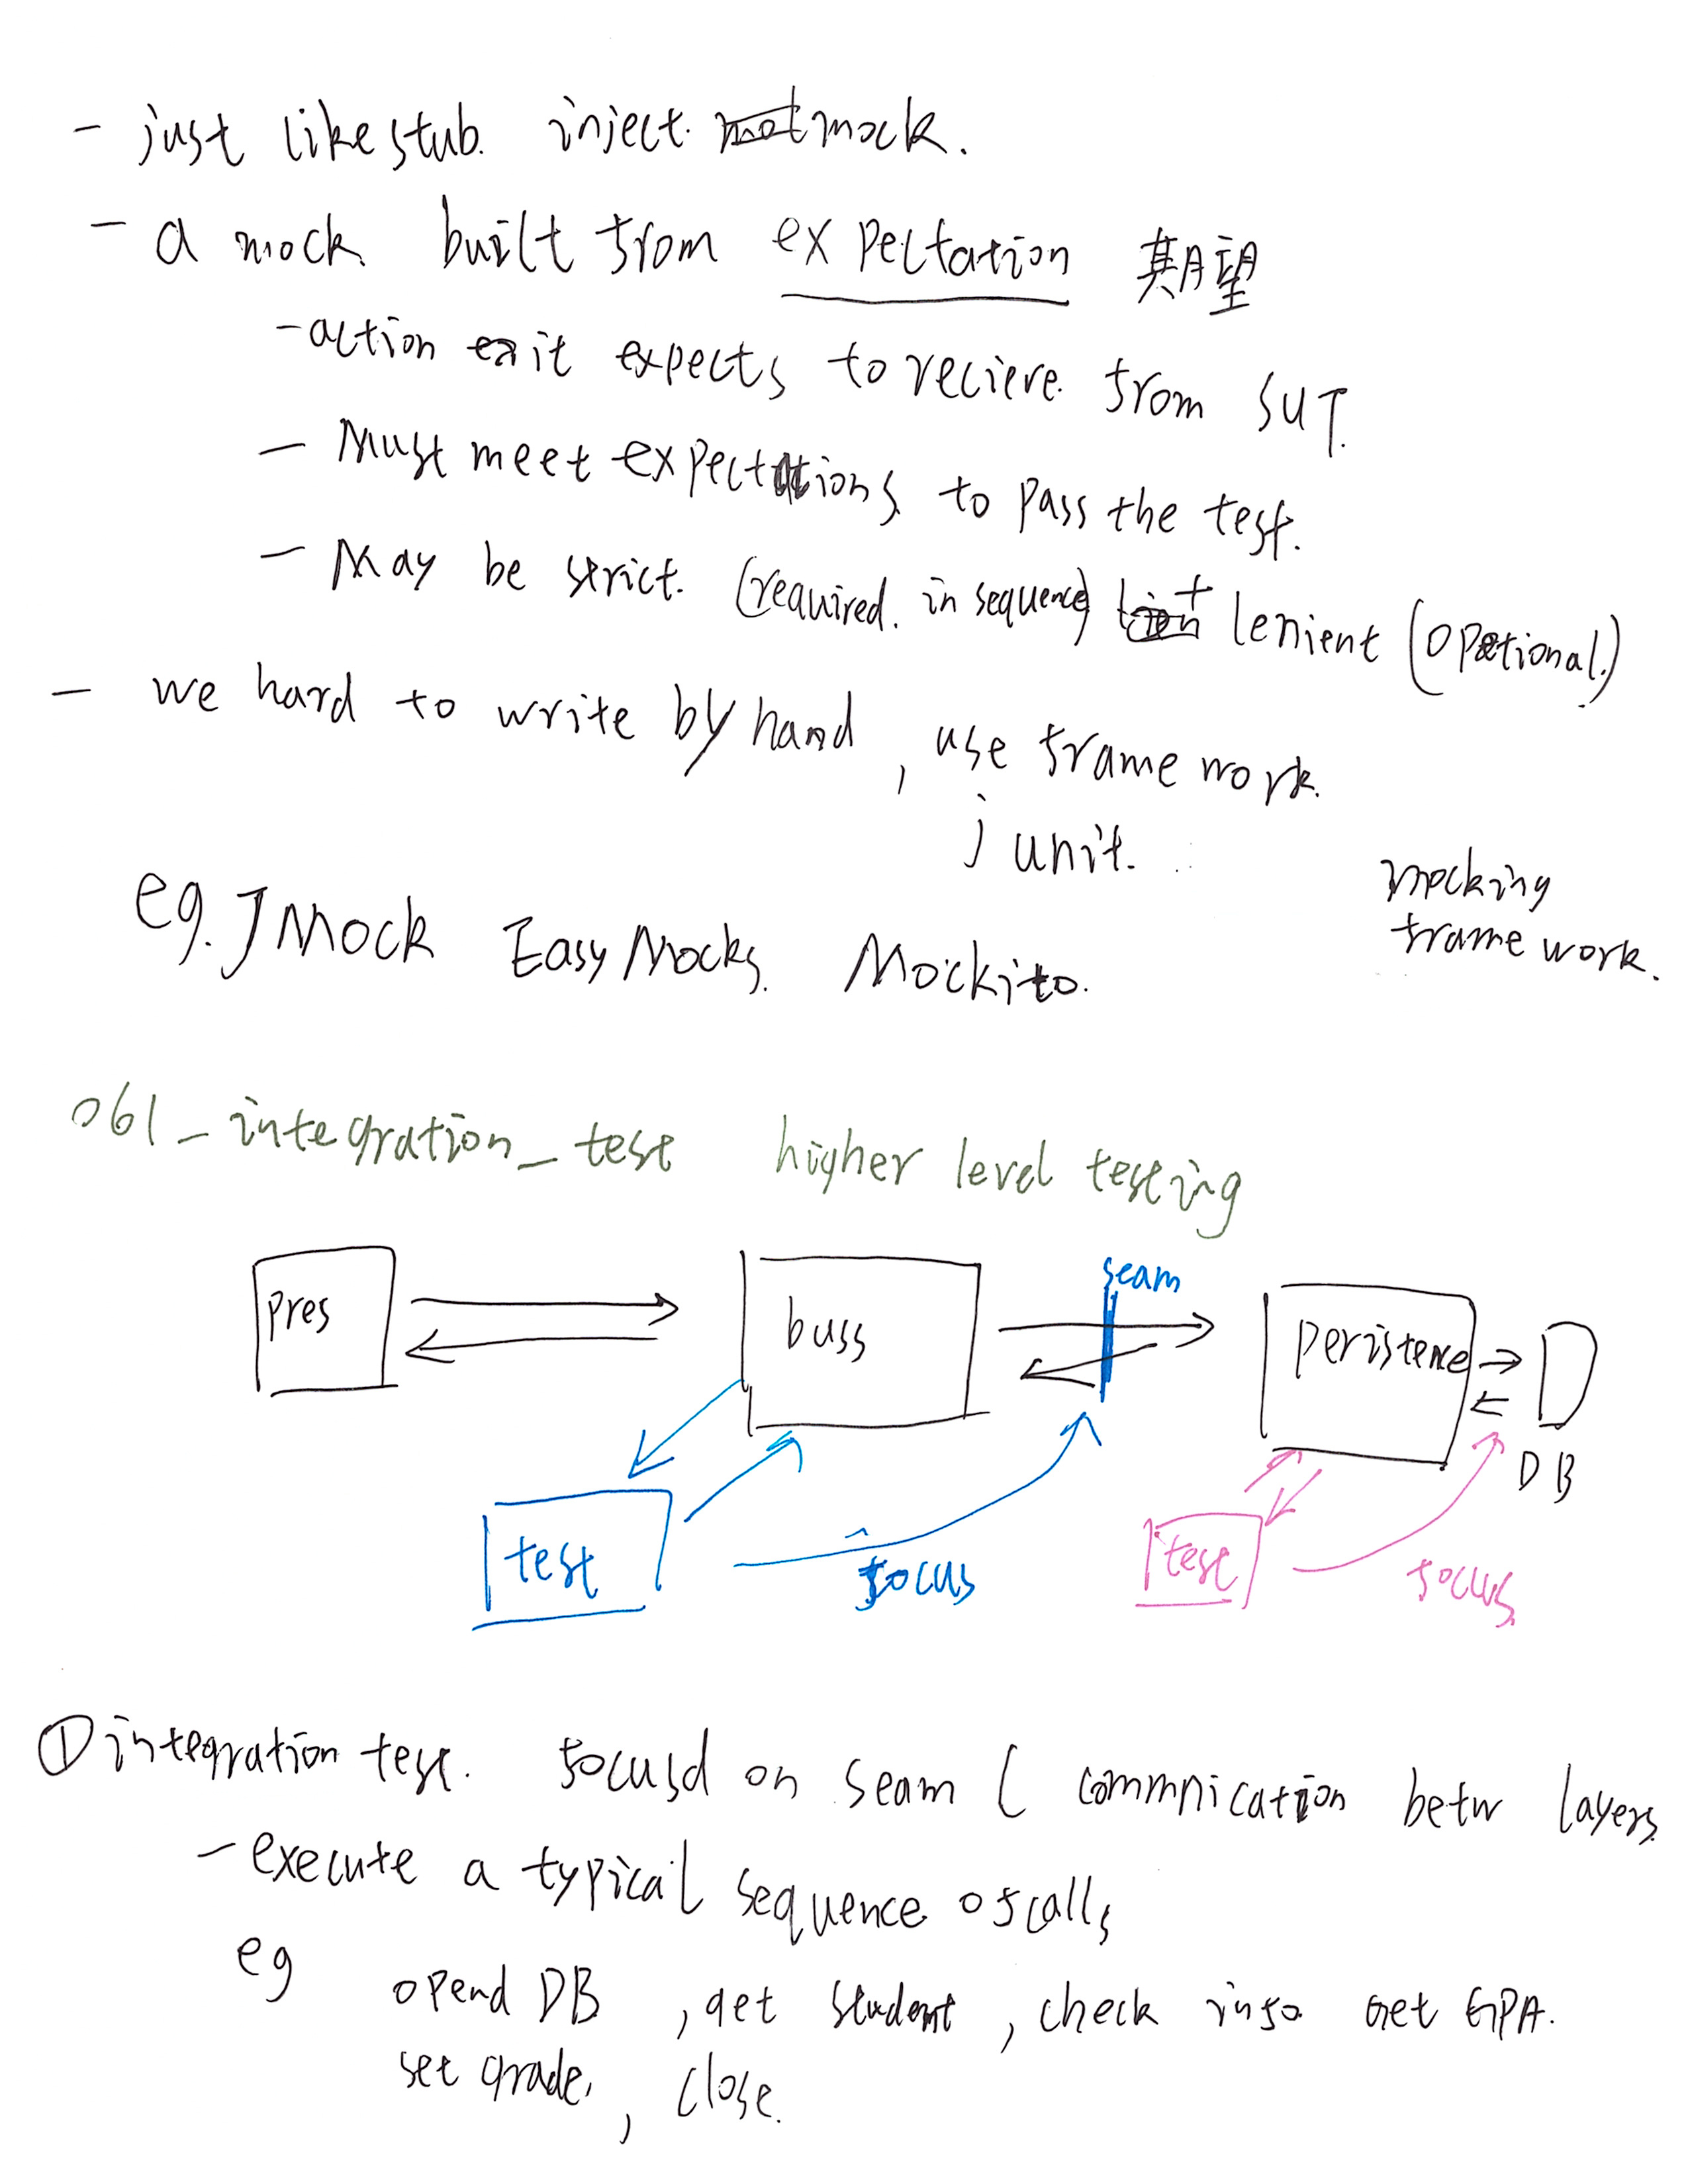 - just like stub. inject mock.
- a mock built from expectation 期望
- action it expects to recieve from SUT.
- Must meet expectations to pass the test.
- May be strict. (required. in sequence) lenient (optional.)
- we hard to write by hand, use frame work.
junit.
mocking
frame work.
eg. JMock EasyMocks. Mockito.
061_integration_test higher level testing
seam
pres
buss
peristence
DB
test
focus
test
focus
① integration test. focusd on seam ( commnication betw layers
- execute a typical sequence of calls
eg opend DB, get student, check info Get GPA.
set grade, close.